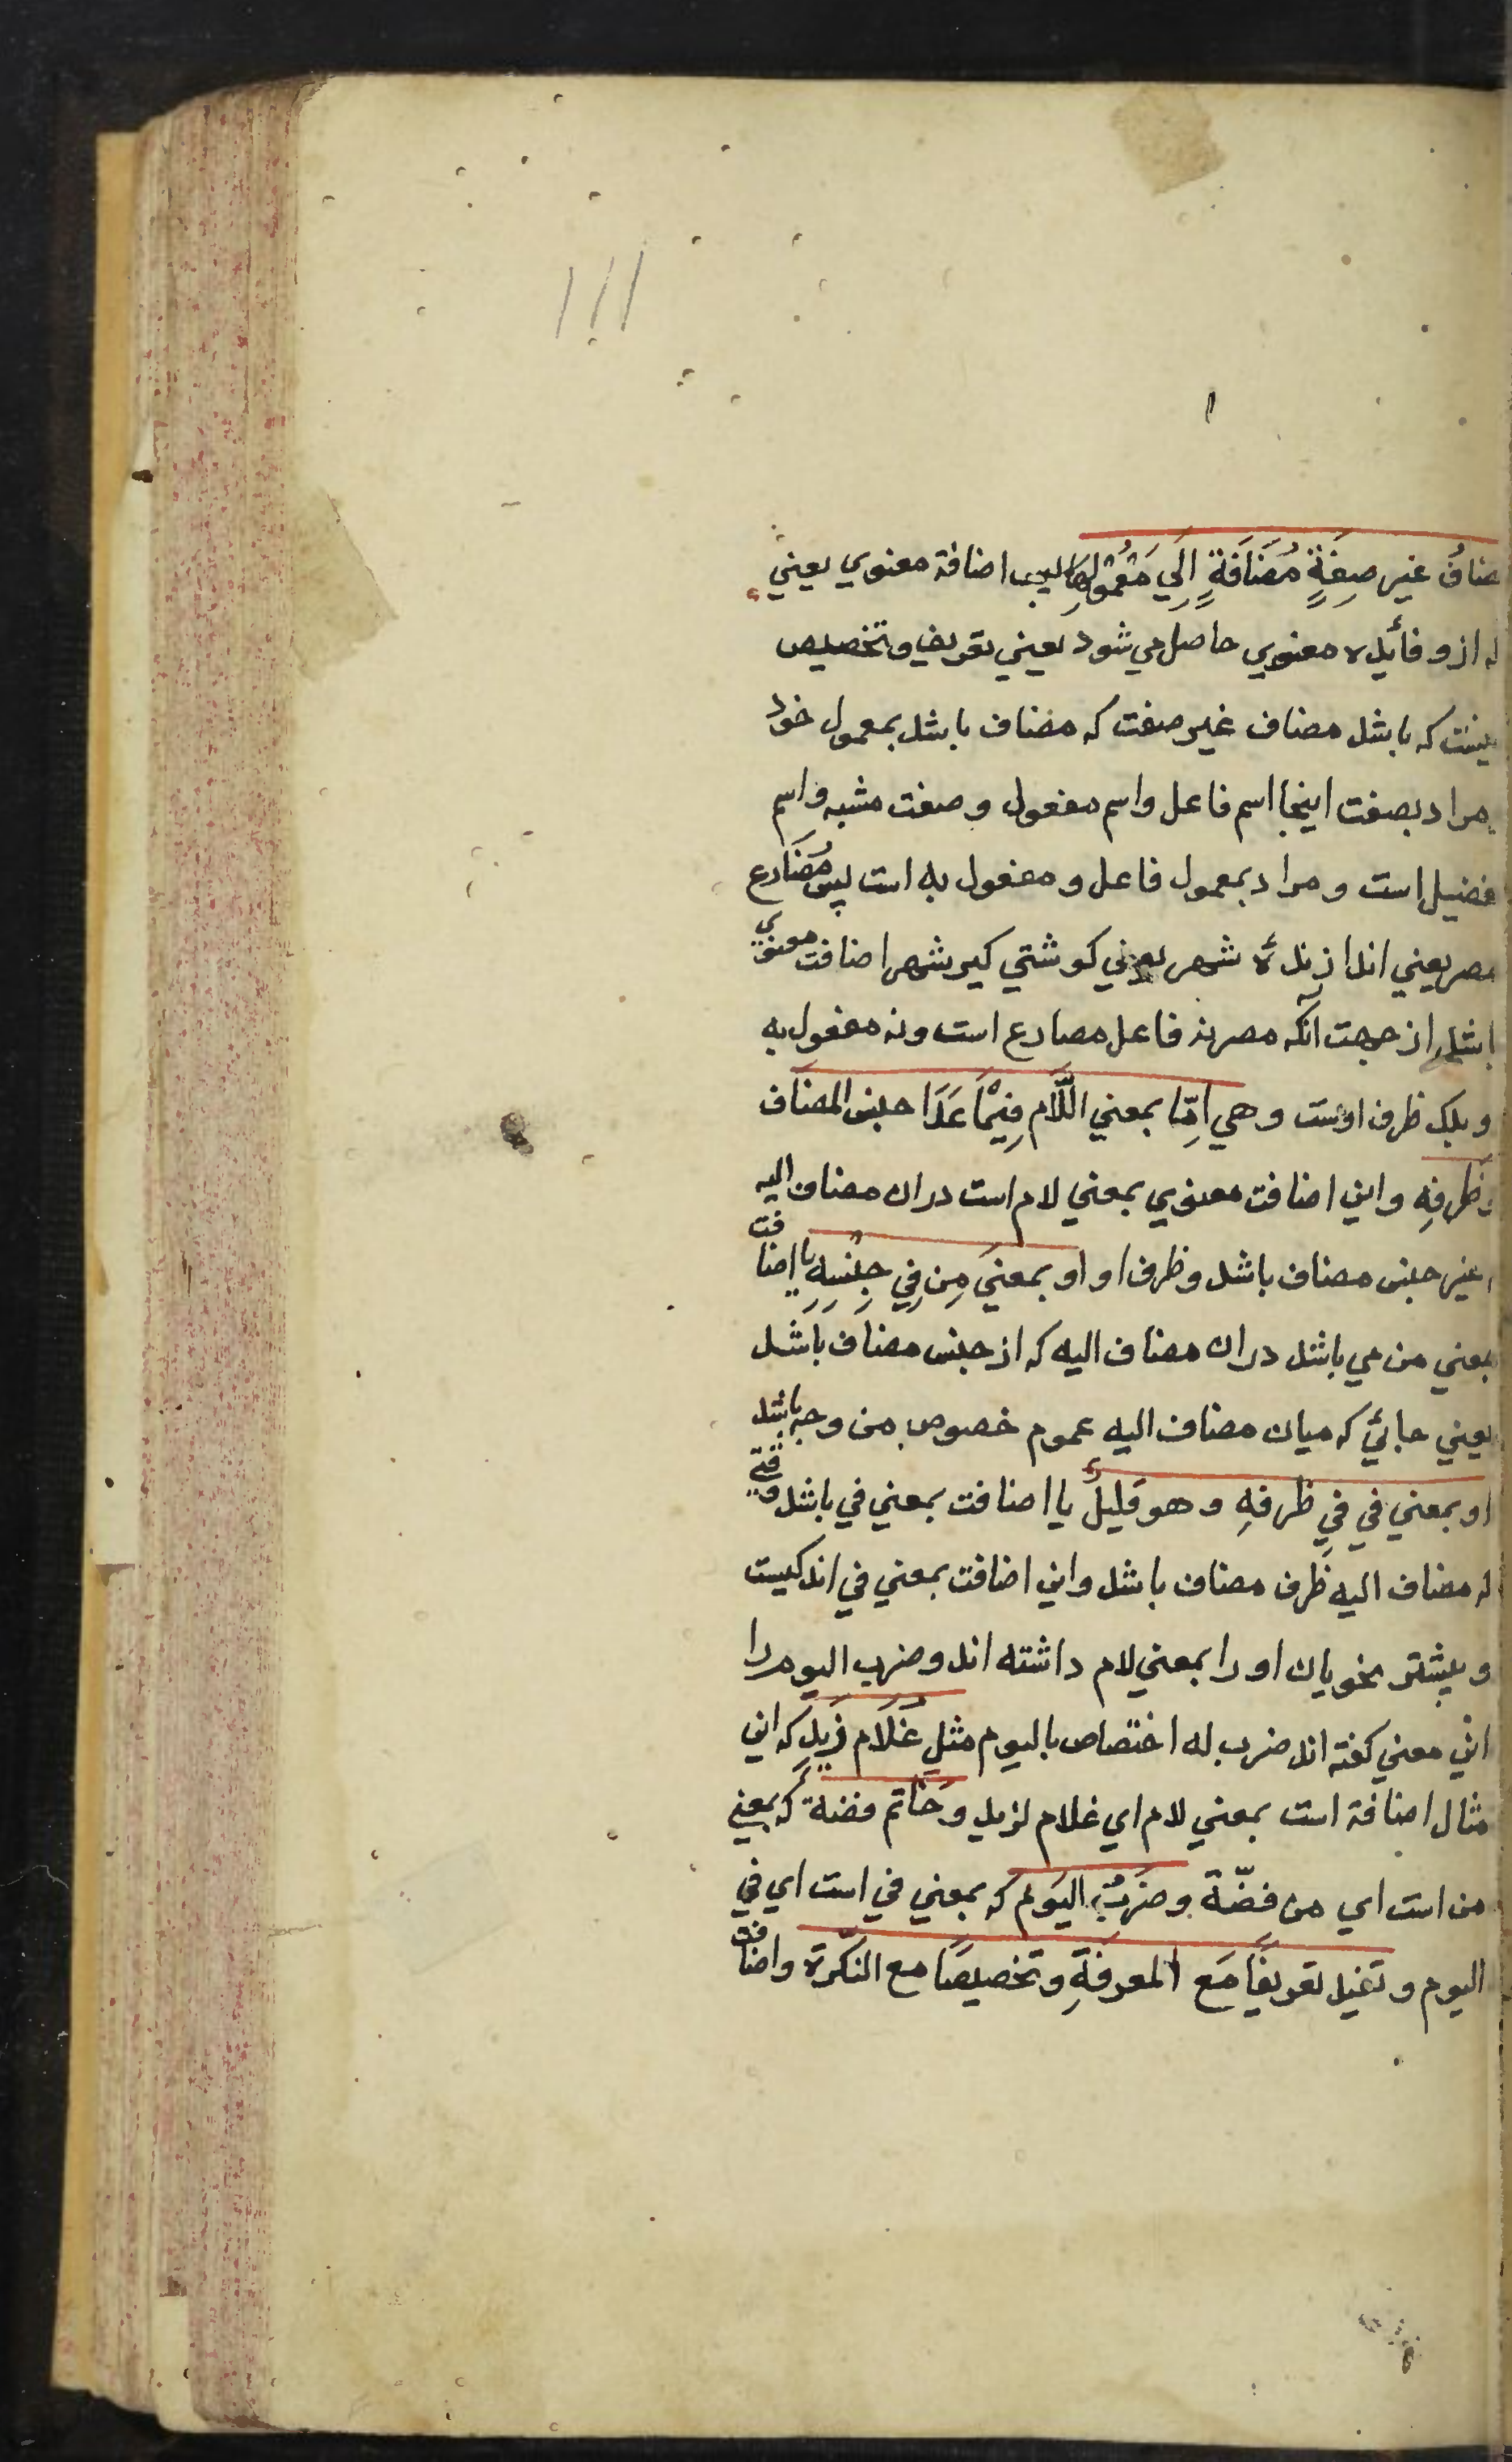 مضافُ غير صِفَةٍ مُضَافَةٍ اِلَي مَعْمُولِهَا اضافة معنوي يعني
كه ازو فائده معنوي حاصل مي شود يعني تعريف وتخصيص
كه باشد مضاف غير صفت كه مضاف باشد بمعمول خود
مراد بصفت اينجا اسم فاعل واسم مفعول وصفت مشبه واسم
تفضيل است و مراد بمعمول فاعل و مفعول به است پس مُصَارع
مصر يعني اندازنده شهر يعني كوشتي كير شهر اضافت معنوي
باشد از جهت آنكه مصر نه فاعل مصارع است ونه مفعول به
و بلكه ظرف اوست و هي اِمّا بمعني اللَّام فِيْمَا عَدَا جنس المضَاف
وظرفِهِ و اين اضافت معنوي بمعني لام است دران مضاف اليه
غير جنس مضاف باشد وظرف او او بمعنيَ مِن فِي جِنْسِهِ يا اضافت
بمعني من مي باشد دران مضاف اليه كه از جنس مضاف باشد
يعني جائي كه ميان مضاف اليه عموم خصوص من وجه باشد
او بمعني في فِي ظرفهِ و هو قليلٌ يا اضافت بمعني في باشد وقتي
كه مضاف اليه ظرف مضاف باشد واين اضافت بمعني في اندكيست
و بيشتر نحويان او را بمعني لام داشته اند و ضرب اليوم را
اين معني كفته اند ضرب له اختصاص باليوم مثلِ غُلَام زَيدٍ كه اين
مثال اضافة است بمعني لام اي غلام لزيد وخَاتم فضةٍ كه بمعني
من است اي من فضّة وضَربُ اليَوم كه بمعني في است اي في
اليوم و تفيد تعريفًا مَع المعرفَةِ وتخصيصًا مع النكّرة واضافت